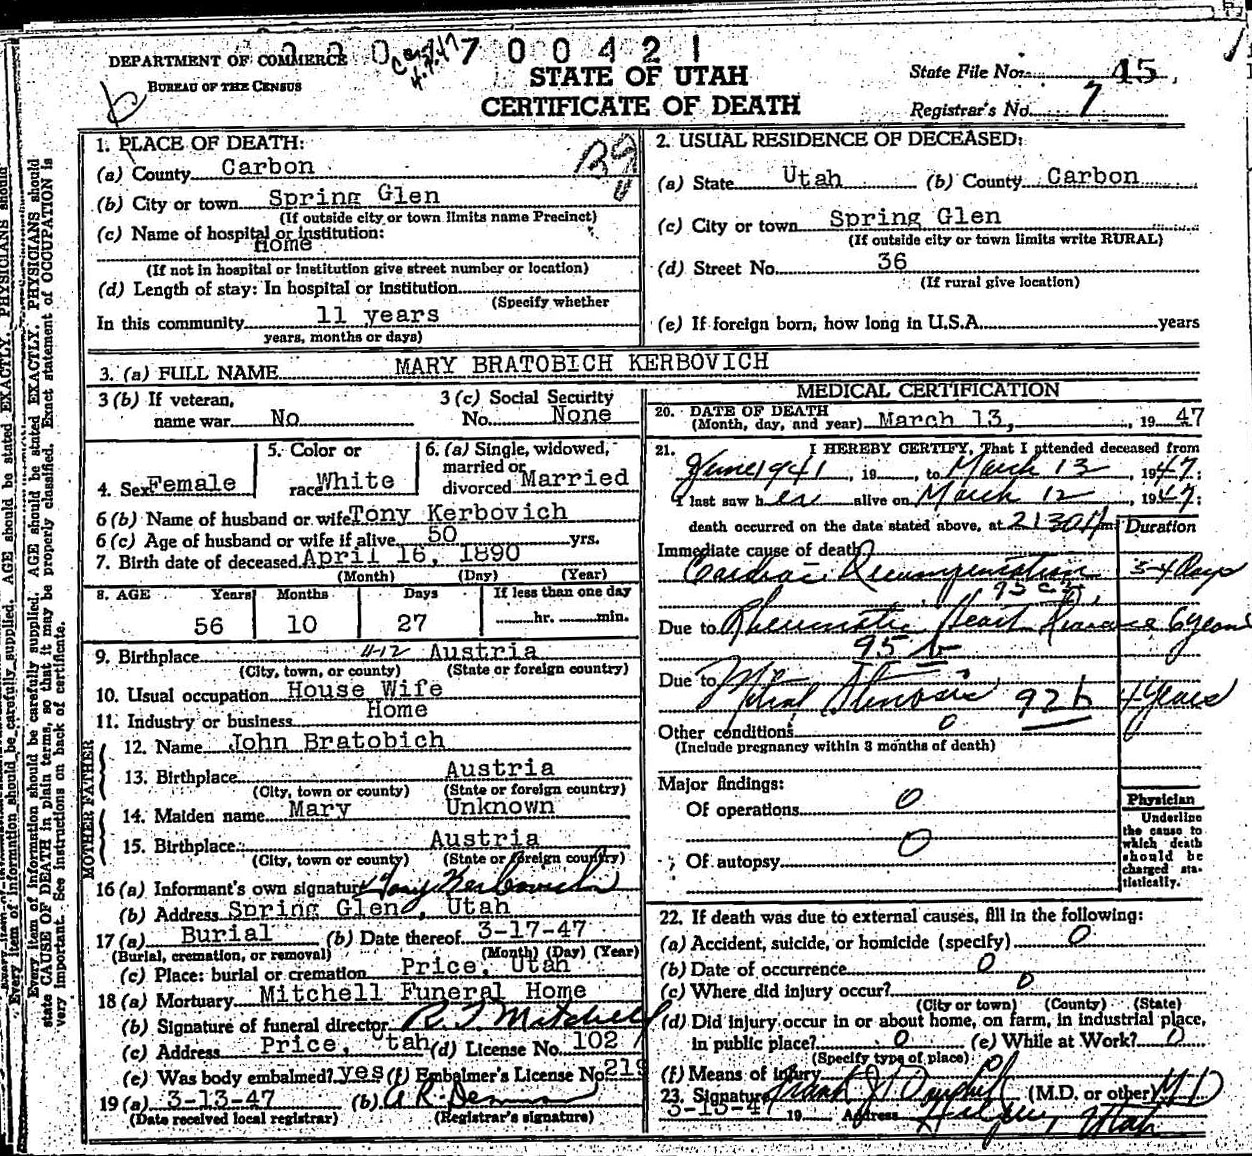 700421
DEPARTMENT OF COMMERCE
BUREAU OF THE CENSUS
STATE OF UTAH
CERTIFICATE OF DEATH
State File No. 45
Registrar's No. 7
1. PLACE OF DEATH:
(a) County Carbon
(b) City or town Spring Glen
(If outside city or town limits name Precinct)
(c) Name of hospital or institution:
Home
(If not in hospital or institution give street number or location)
(d) Length of stay: In hospital or institution
(Specify whether
In this community 11 years
years, months or days)
2. USUAL RESIDENCE OF DECEASED:
(a) State Utah (b) County Carbon
(c) City or town Spring Glen
(If outside city or town limits write RURAL)
(d) Street No. 36
(If rural give location)
(e) If foreign born, how long in U.S.A. years
3. (a) FULL NAME MARY BRATOBICH KERBOVICH
3 (b) If veteran,
name war No
3 (c) Social Security
No. None
4. Sex Female
5. Color or
race White
6. (a) Single, widowed,
married or
divorced Married
6 (b) Name of husband or wife Tony Kerbovich
6 (c) Age of husband or wife if alive 50 yrs.
7. Birth date of deceased April 16, 1890
(Month) (Day) (Year)
8. AGE Years Months Days If less than one day
56 10 27 hr. min.
9. Birthplace 11-12 Austria
(City, town, or county) (State or foreign country)
10. Usual occupation House Wife
11. Industry or business Home
FATHER
12. Name John Bratobich
13. Birthplace Austria
(City, town or county) (State or foreign country)
MOTHER
14. Maiden name Mary Unknown
15. Birthplace Austria
(City, town or county) (State or foreign country)
16 (a) Informant's own signature Tony Kerbovich
(b) Address Spring Glen, Utah
17 (a) Burial (b) Date thereof 3-17-47
(Burial, cremation, or removal) (Month) (Day) (Year)
(c) Place: burial or cremation Price, Utah
18 (a) Mortuary Mitchell Funeral Home
(b) Signature of funeral director R. T. Mitchell
(c) Address Price, Utah (d) License No. 102
(e) Was body embalmed? yes (f) Embalmer's License No. 219
19 (a) 3-13-47 (b) A R
(Date received local registrar) (Registrar's signature)
MEDICAL CERTIFICATION
20. DATE OF DEATH
(Month, day, and year) March 13, 19 47
21. I HEREBY CERTIFY, That I attended deceased from
June 1941, 19 , to March 13, 1947;
I last saw her alive on March 12, 1947;
death occurred on the date stated above, at 2:30 A m
Duration
Immediate cause of death
Cardiac Decompensation 3-4 Days
95 c 2
Due to Rheumatic Heart Disease 6 years
95 b
Due to
Mitral Stenosis 92 b 4 years
Other conditions 0
(Include pregnancy within 3 months of death)
Major findings:
Of operations 0
Of autopsy 0
Physician
Underline
the cause to
which death
should be
charged sta-
tistically.
22. If death was due to external causes, fill in the following:
(a) Accident, suicide, or homicide (specify) 0
(b) Date of occurrence 0
(c) Where did injury occur? 0
(City or town) (County) (State)
(d) Did injury occur in or about home, on farm, in industrial place,
in public place? 0 (e) While at Work? 0
(Specify type of place)
(f) Means of injury
23. Signature Frank J. (M.D. or other) M D
3-13-47 19 Address Helper, Utah
Every item of information should be carefully supplied. AGE should be stated EXACTLY. PHYSICIANS should
state CAUSE OF DEATH in plain terms, so that it may be properly classified. Exact statement of OCCUPATION is
very important. See instructions on back of certificate.